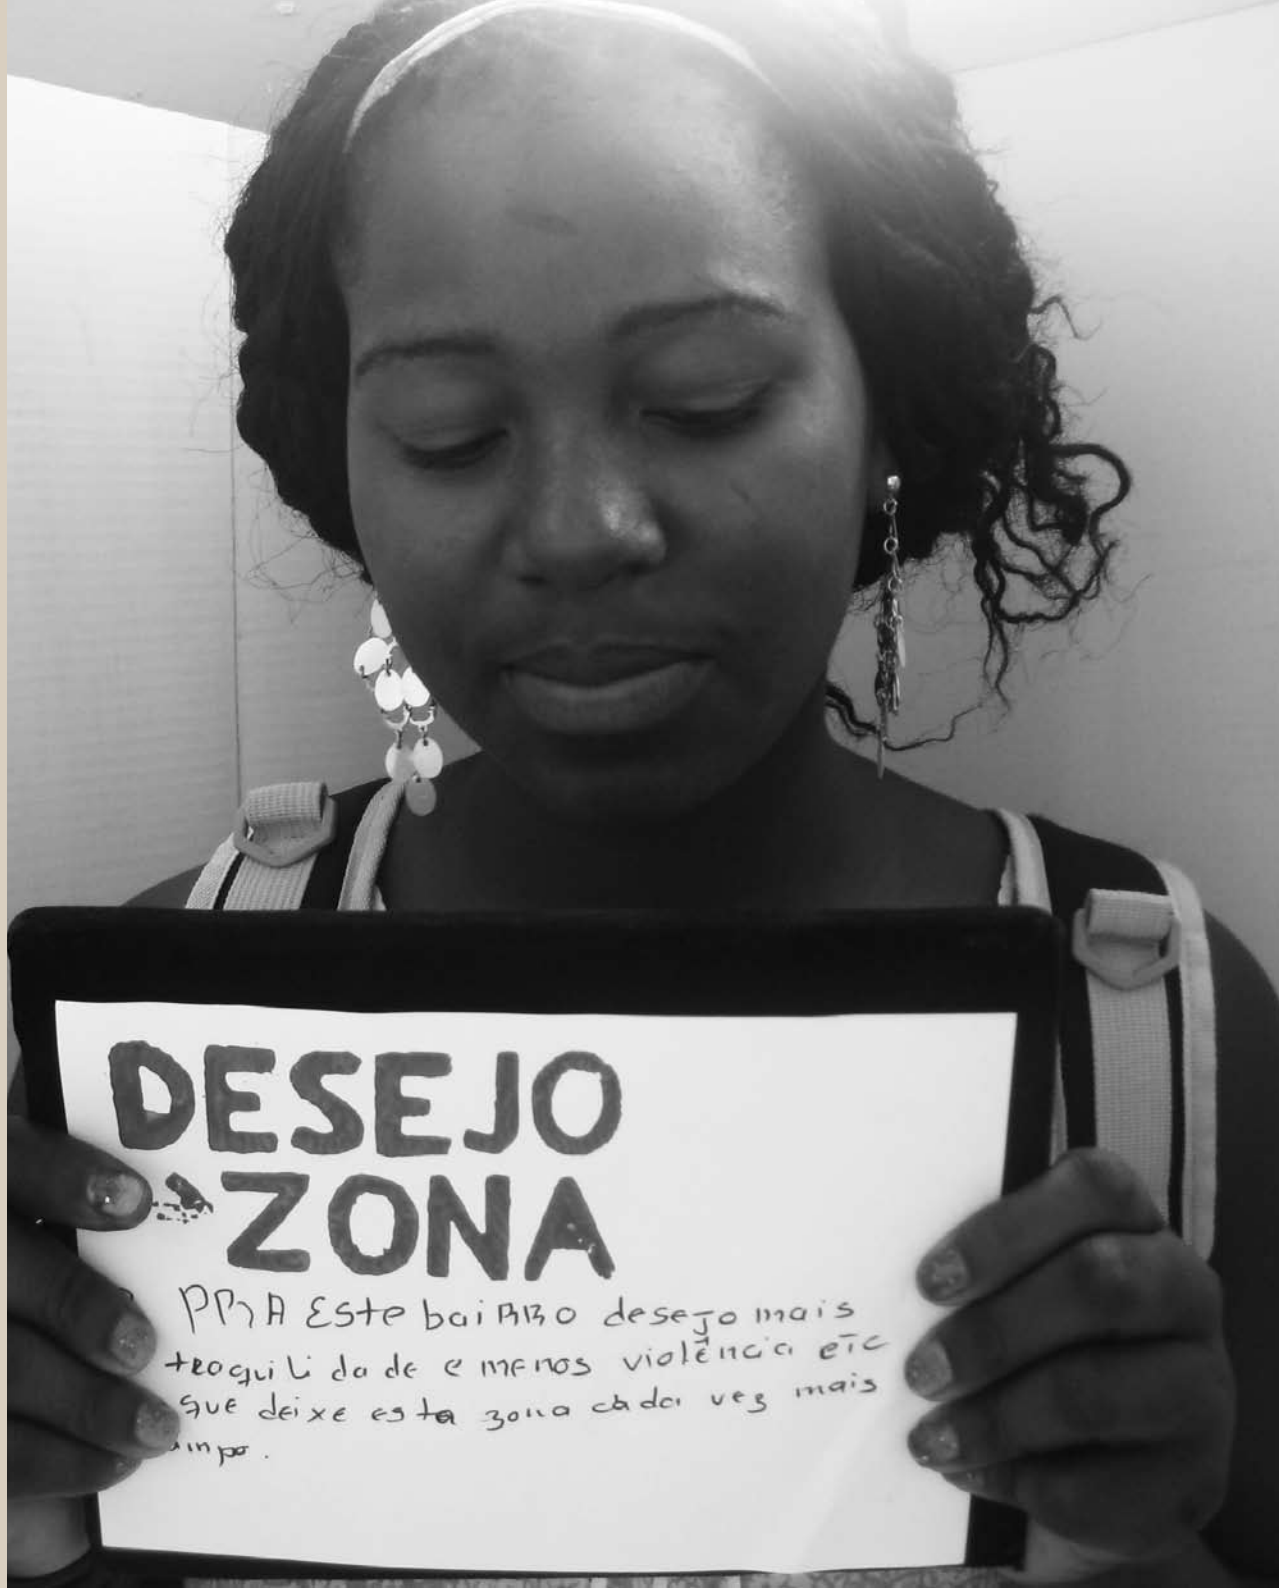 DESEJO
ZONA
PRA Este bairro desejo mais
troquilidade e menos violência etc
que deixe esta zona cada vez mais